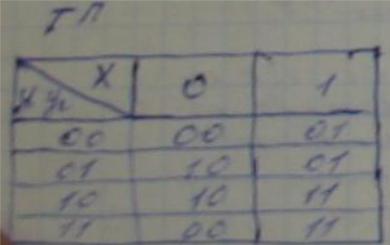 ТП
X 0 1
y1 y2
00 00 01
01 10 01
10 10 11
11 00 11